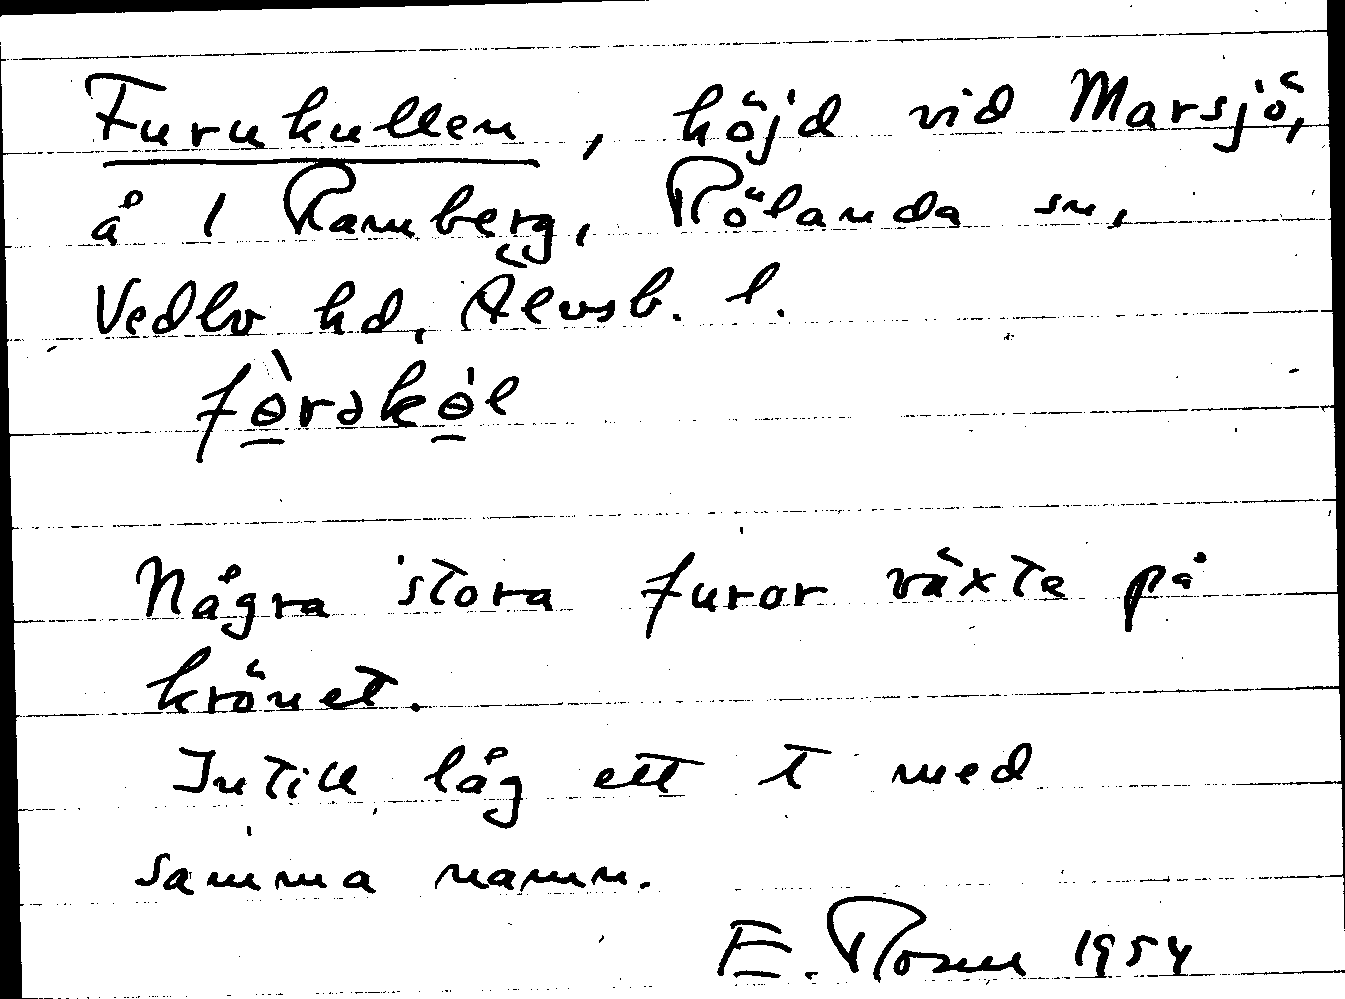 Furukullen, höjd vid Marsjö,
å 1 Ramberg, Rölanda sn,
Vedbo hd, Älvsb. l.
fɵ̀rəkɵ́l
Några stora furor växte på
krönet.
Intill låg ett t med
samma namn.
E. Rosen 1954